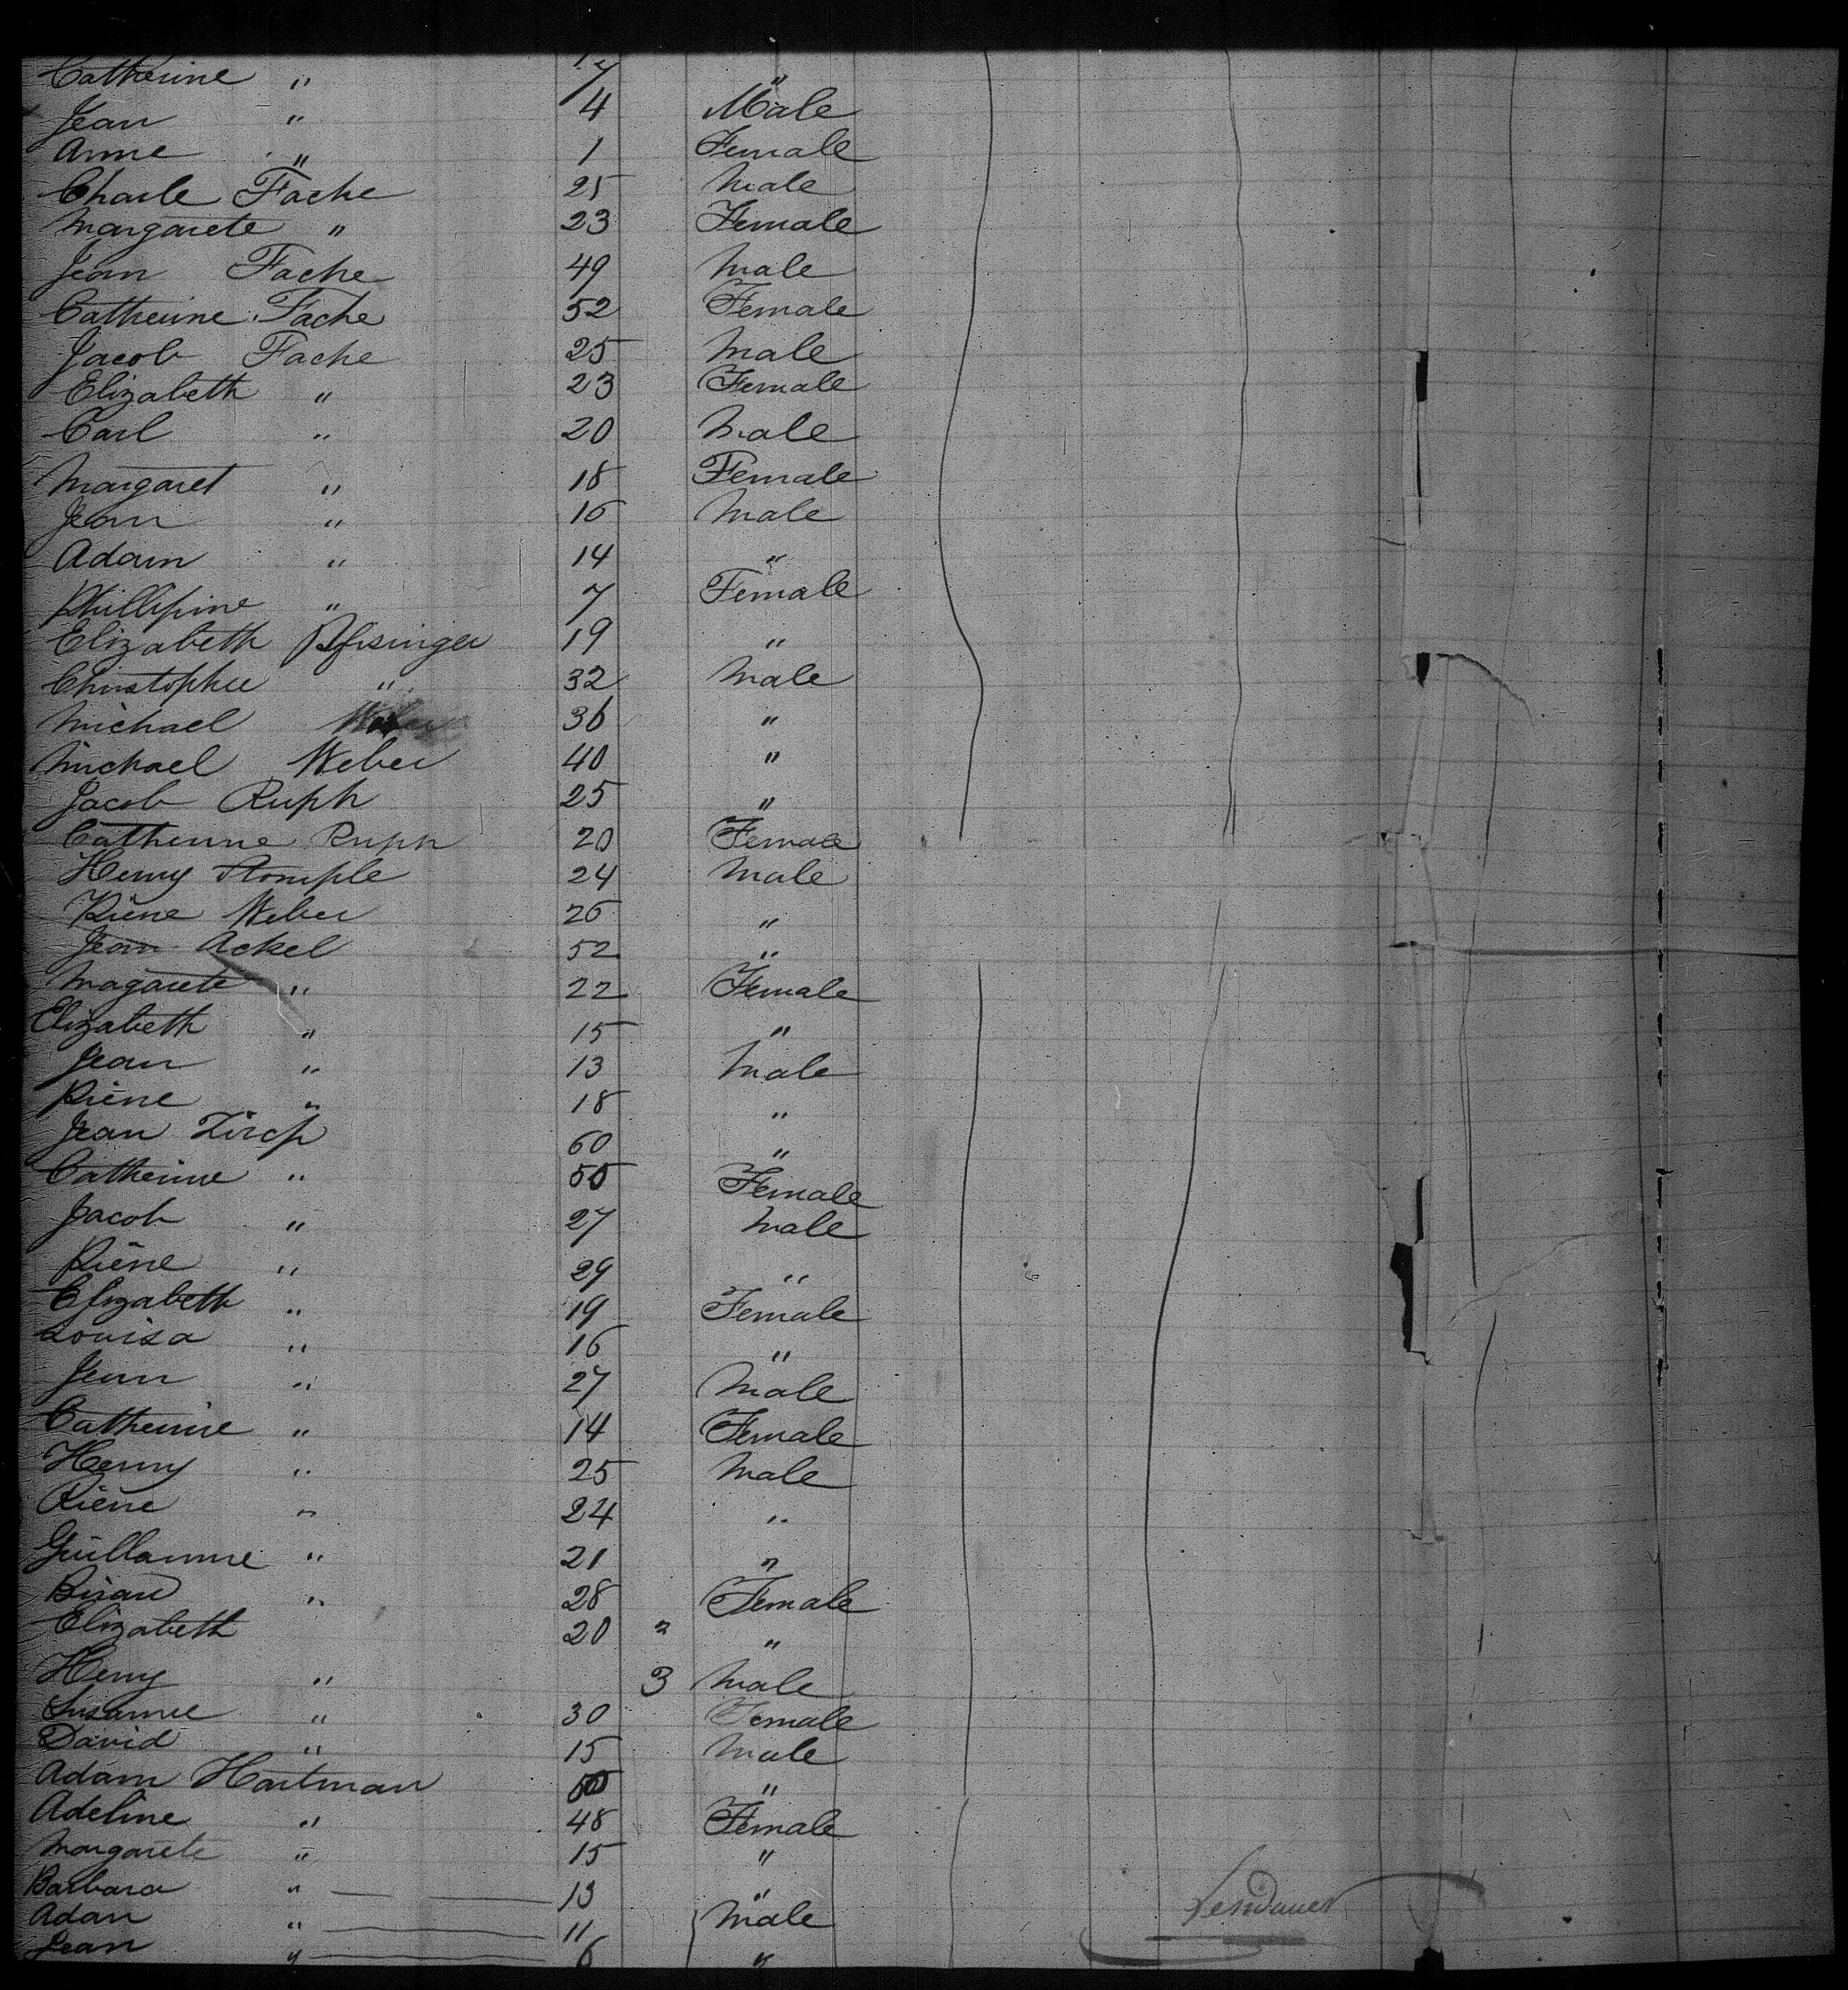 Catherine " 7 "
Jean " 4 Male
Anne " 1 Female
Charle Fache 25 Male
Margarete " 23 Female
Jean Fache 49 Male
Catherine Fache 52 Female
Jacob Fache 25 Male
Elizabeth " 23 Female
Carl " 20 Male
Margaret " 18 Female
Jean " 16 Male
Adam " 14 "
Phillipine " 7 Female
Elizabeth Pfisinger 19 "
Christopher " 32 Male
Michael 36 "
Michael Weber 40 "
Jacob Ruph 25 "
Catherine Ruph 20 Female
Henry Stomple 24 Male
Piene Weber 26 "
Jean Ackel 52 "
Magarete " 22 Female
Elizabeth " 15 "
Jean " 13 Male
Piene " 18 "
Jean Zirch 60 "
Catherine " 55 Female
Jacob " 27 Male
Piene " 29 "
Elizabeth " 19 Female
Louisa " 16 "
Jean " 27 Male
Catherine " 14 Female
Henry " 25 Male
Piene " 24 "
Guillaume " 21 "
" 28 Female
Elizabeth 20 " "
Henry " 3 Male
Susanne " 30 Female
David " 15 Male
Adam Hartman "
Adeline " 48 Female
Margarete " 15 "
Barbara " 13 "
Adan " 11 Male
Jean " 6 "